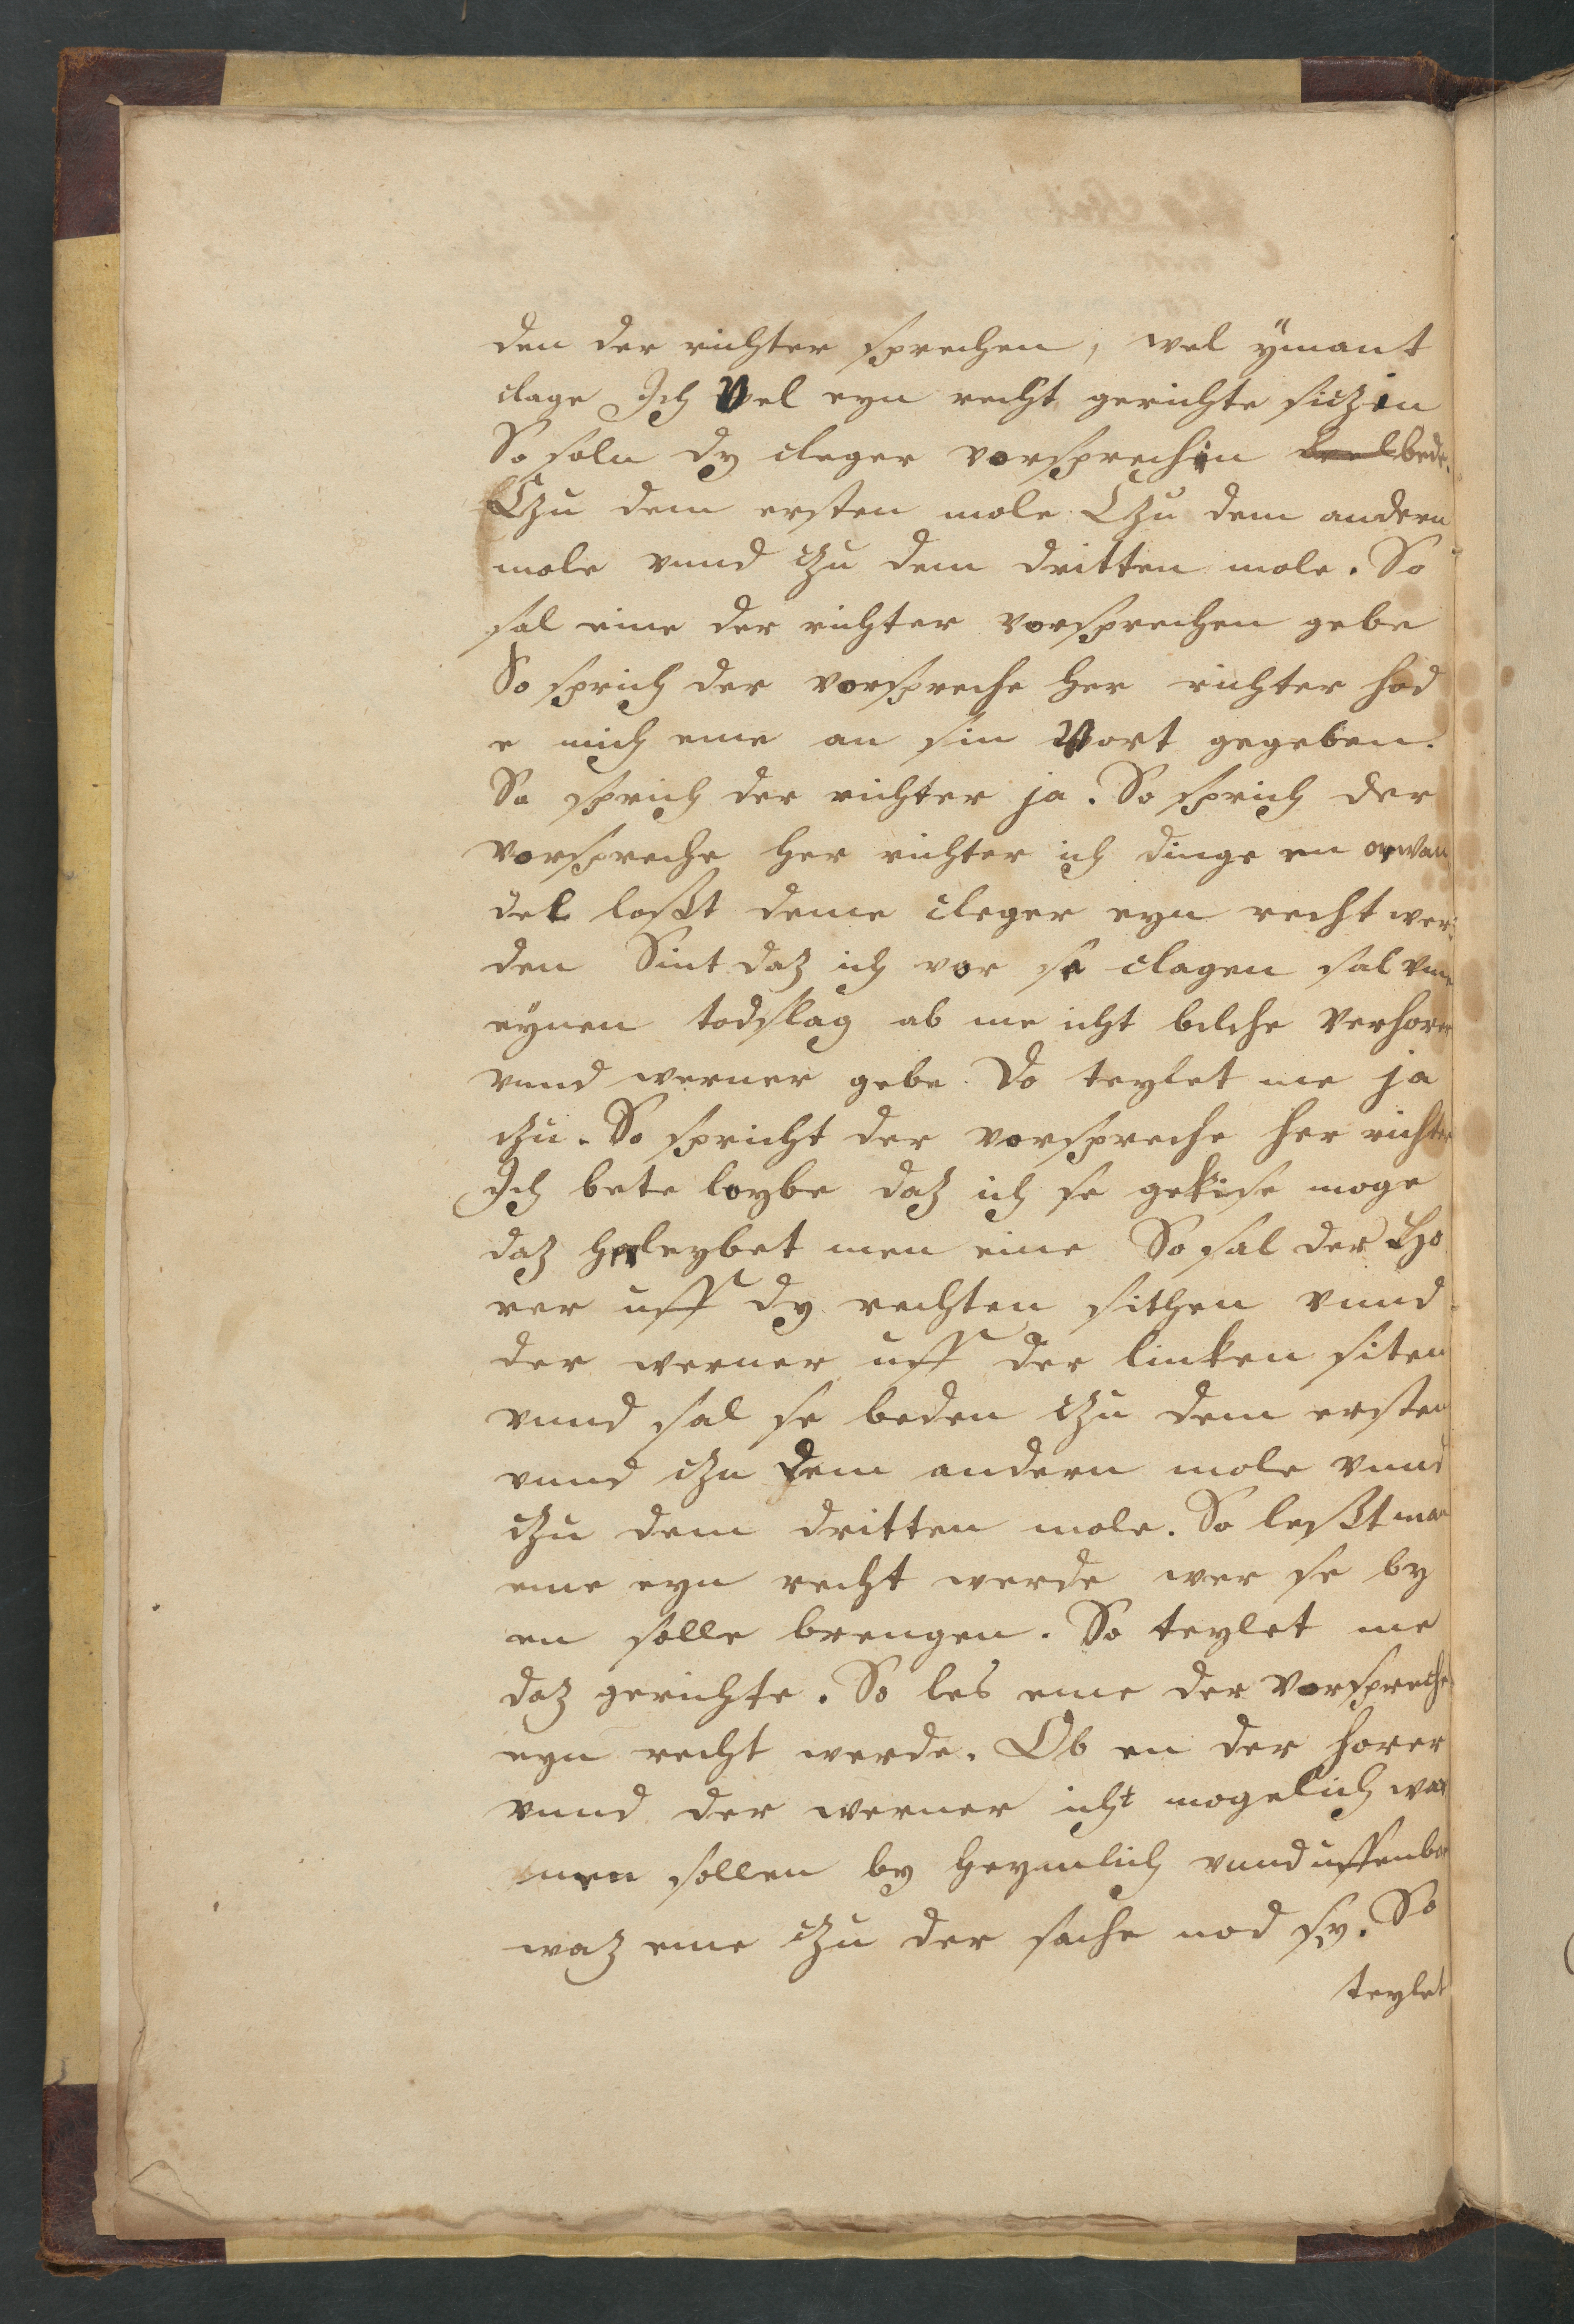 den der richter sprechen, wel ÿmant
clage Jch Wel eyn recht gerichte siczin
So soln dy cleger vorsprechin bede
Czu dem ersten mole Czu dem andern
mole vnnd czu dem dritten mole. So
sal eme der richter vorsprechen gebe
So sprich der vorspreche her richter hod
e mich eme an sin Wort gegeben.
So sprich der richter ja. So sprich der
vorspreche her richter ich dinge en orwan
del loßt deme cleger eyn recht wer
den Sint daz ich vor se clagen sal vmme
eÿnen todslag ab me icht bilche Verhorer
vnnd werner gebe. Do teylet me ja
czu. So spricht der vorspreche her richter
Jch bete loybe daz ich se gekise moge
daz herleybet men eme So sal der Ho
rer uff dy rechten sithen vnnd
der werner uff der linken siten
vnnd sal se beden czu dem ersten
vnnd czu dem andern mole vnnd
czu dem dritten mole. So leßt man
eme eyn recht werde wer se by
en solle brengen. So teylet me
daz gerichte. So les eme der Vorspreche
eyn recht werde. Ob en der horer
vnnd der werner icht mogelich war
nen sollen by heymlich vnnd uffenbor
waz eme czu der sache nod sy. So
teylet